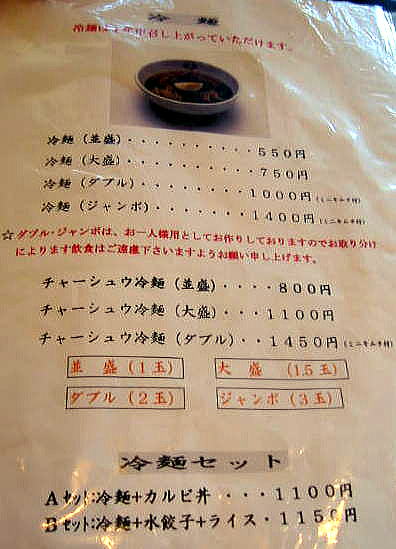 冷麺
冷麺は1年中召し上がっていただけます。
冷麺（並盛）・・・・・・・・・・550円
冷麺（大盛）・・・・・・・・・・750円
冷麺（ダブル）・・・・・・・・1000円（ミニキムチ付）
冷麺（ジャンボ）・・・・・・・1400円（ミニキムチ付）
☆ダブル・ジャンボは、お一人様用としてお作りしておりますのでお取り分け
によります飲食はご遠慮下さいますようお願い申し上げます。
チャーシュウ冷麺（並盛）・・・・800円
チャーシュウ冷麺（大盛）・・・1100円
チャーシュウ冷麺（ダブル）・・1450円（ミニキムチ付）
並盛（1玉） 大盛（1.5玉）
ダブル（2玉） ジャンボ（3玉）
冷麺セット
Aセット:冷麺+カルビ丼・・・1100円
Bセット:冷麺+水餃子+ライス・1150円